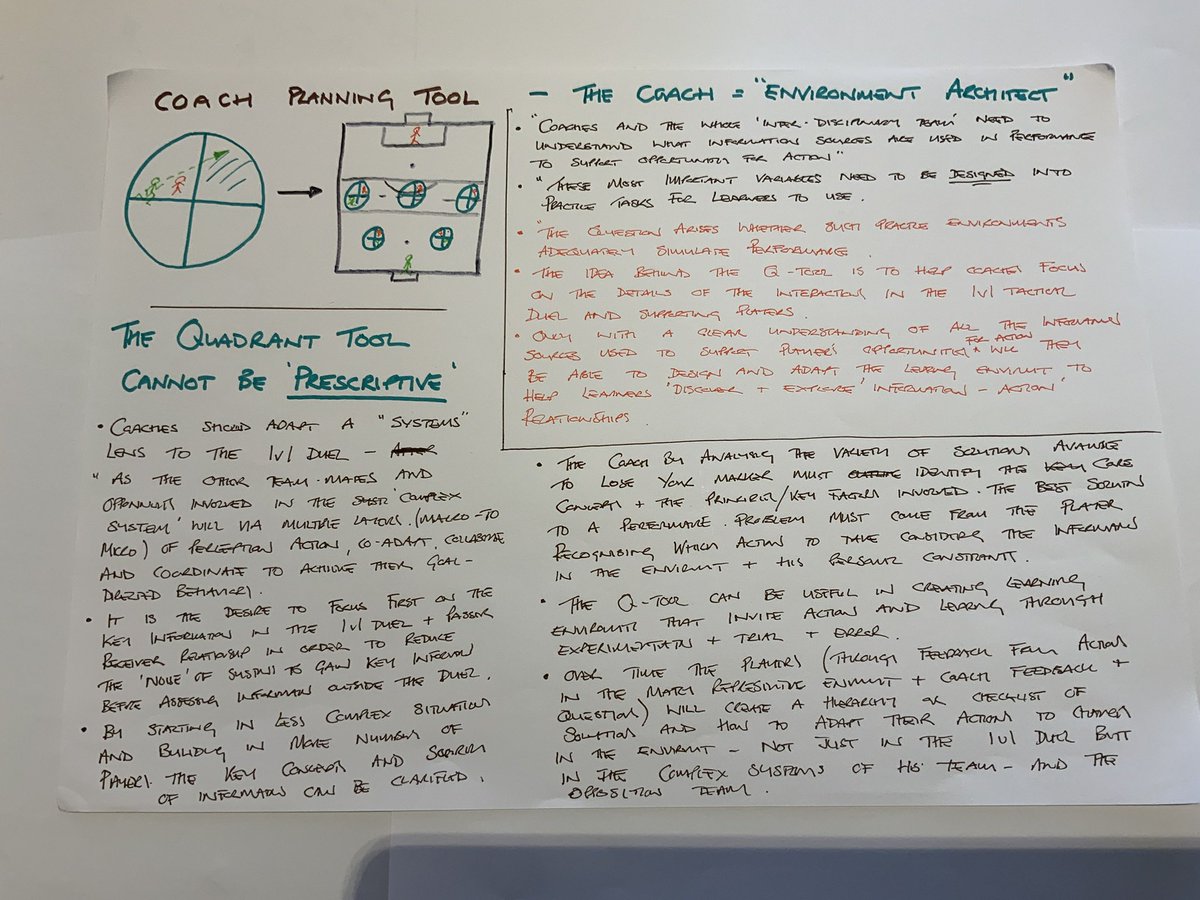 COACH PLANNING TOOL
- THE COACH = "ENVIRONMENT ARCHITECT"
• "COACHES AND THE WHOLE 'INTER-DISCIPLINARY TEAM' NEED TO
UNDERSTAND WHAT INFORMATION SOURCES ARE USED IN PERFORMANCE
TO SUPPORT OPPORTUNITY FOR ACTION"
• "THESE MOST IMPORTANT VARIABLES NEED TO BE DESIGNED INTO
PRACTICE TASKS FOR LEARNERS TO USE.
• "THE QUESTION ARISES WHETHER SUCH PRACTICE ENVIRONMENTS
ADEQUATELY SIMULATE PERFORMANCE.
• THE IDEA BEHIND THE Q-TOOL IS TO HELP COACHES FOCUS
ON THE DETAILS OF THE INTERACTIONS IN THE 1V1 TACTICAL
DUEL AND SUPPORTING PLAYERS.
• ONLY WITH A CLEAR UNDERSTANDING OF ALL THE INFORMATION
SOURCES USED TO SUPPORT PLAYER'S OPPORTUNITIES FOR ACTION WILL THEY
BE ABLE TO DESIGN AND ADAPT THE LEARNING ENVIRONMENT TO
HELP LEARNERS 'DISCOVER + EXPLORE' INFORMATION - ACTION'
RELATIONSHIPS.
THE QUADRANT TOOL
CANNOT BE 'PRESCRIPTIVE'
• COACHES SHOULD ADAPT A "SYSTEMS"
LENS TO THE 1V1 DUEL -
"AS THE OTHER TEAM-MATES AND
OPPONENTS INVOLVED IN THE 'COMPLEX
SYSTEM' WILL VIA MULTIPLE LAYERS. (MACRO-TO
MICRO) OF PERCEPTION ACTION, CO-ADAPT, COLLABORATE
AND COORDINATE TO ACHIEVE THEIR GOAL-
DIRECTED BEHAVIORS.
• IT IS THE DESIRE TO FOCUS FIRST ON THE
KEY INFORMATION IN THE 1V1 DUEL + PASSER
RECEIVER RELATIONSHIP IN ORDER TO REDUCE
THE 'NOISE' OF SYSTEMS TO GAIN KEY INFORMATION
BEFORE ASSESSING INFORMATION OUTSIDE THE DUEL.
• BY STARTING IN LESS COMPLEX SITUATIONS
AND BUILDING IN MORE NUMBERS OF
PLAYERS. THE KEY CONCEPTS AND SOURCES
OF INFORMATION CAN BE CLARIFIED.
• THE COACH BY ANALYSING THE VARIETY OF SOLUTIONS AVAILABLE
TO LOSE YOUR MARKER MUST IDENTIFY THE CORE
CONCEPT + THE PRINCIPLES/KEY FACTORS INVOLVED. THE BEST SOLUTION
TO A PERFORMANCE PROBLEM MUST COME FROM THE PLAYER
RECOGNISING WHICH ACTION TO TAKE CONSIDERING THE INFORMATION
IN THE ENVIRONMENT + HIS PERSONAL CONSTRAINTS.
• THE Q-TOOL CAN BE USEFUL IN CREATING LEARNING
ENVIRONMENTS THAT INVITE ACTION AND LEARNING THROUGH
EXPERIMENTATION + TRIAL + ERROR.
• OVER TIME THE PLAYERS (THROUGH FEEDBACK FROM ACTIONS
IN THE MATCH REPRESENTATIVE ENVIRONMENT + COACH FEEDBACK +
QUESTIONS) WILL CREATE A HIERARCHY OR CHECKLIST OF
SOLUTION AND HOW TO ADAPT THEIR ACTIONS TO CHANGES
IN THE ENVIRONMENT - NOT JUST IN THE 1V1 DUEL BUTT
IN THE COMPLEX SYSTEMS OF HIS TEAM - AND THE
OPPOSITION TEAM.